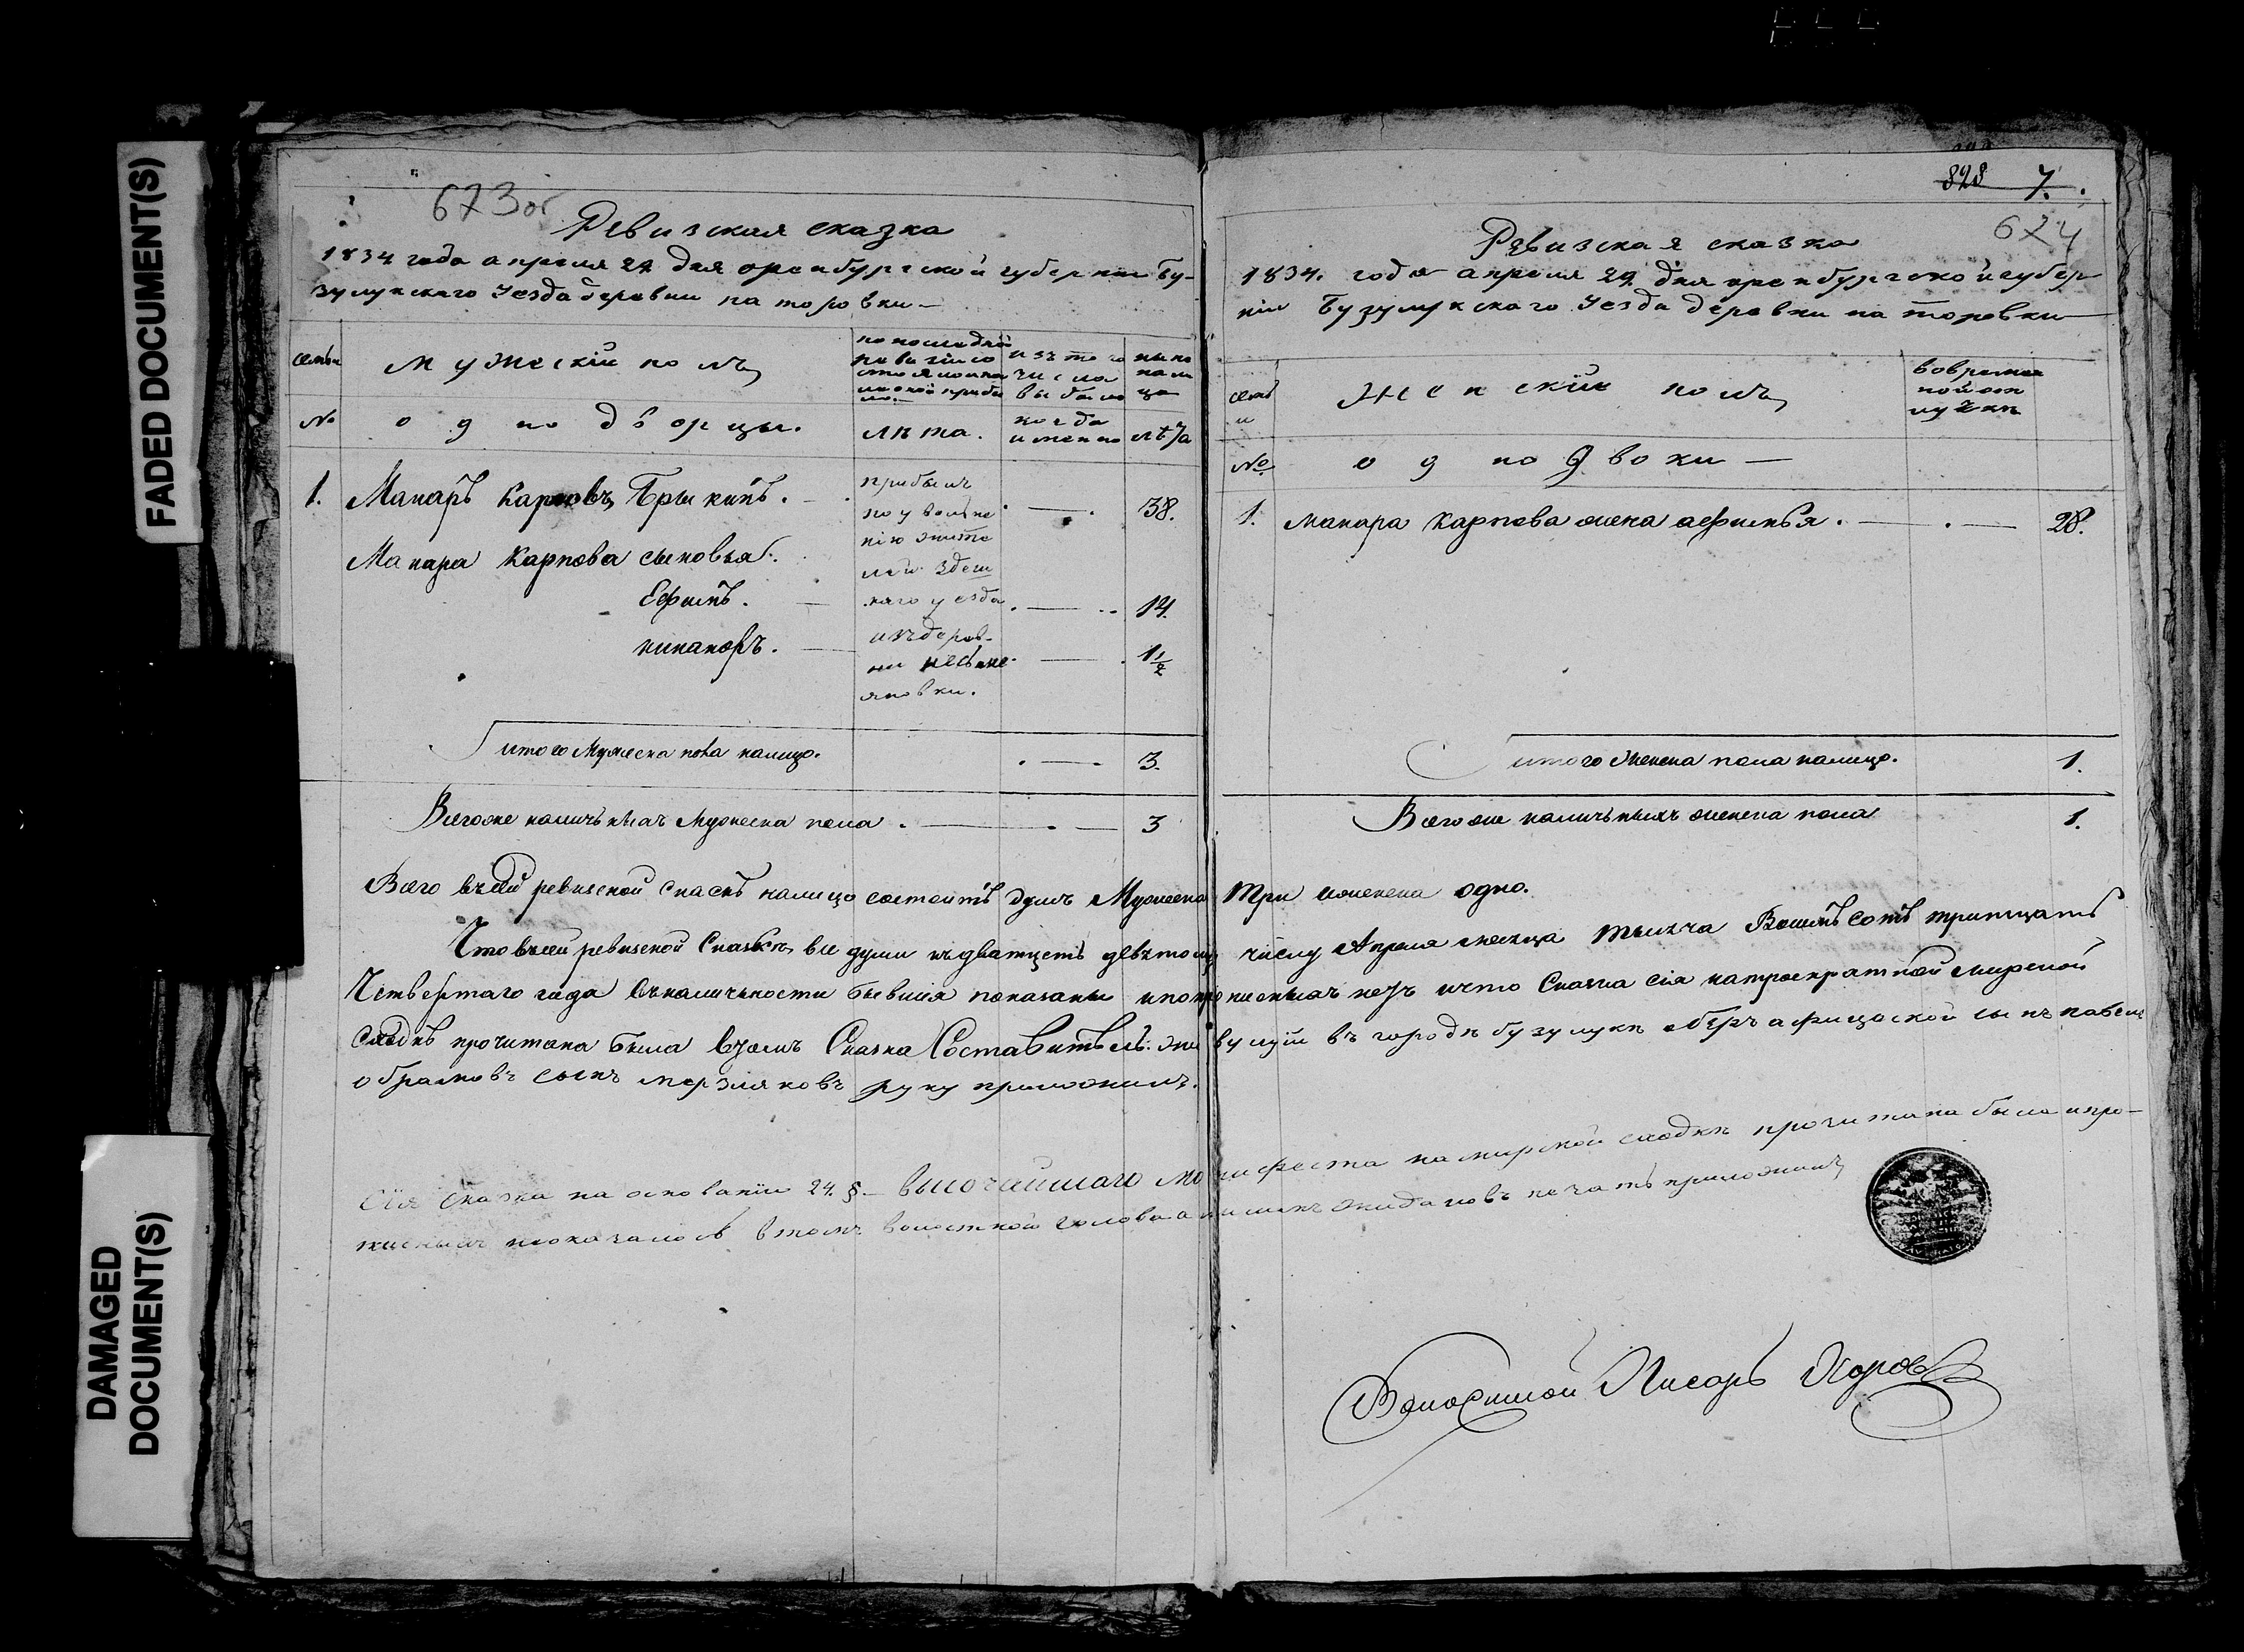 FADED DOCUMENT(S)
DAMAGED
DOCUMENT(S)
673об
Ревизская сказка
1834 года апреля 29 дня оренбургской губернии Бу-
зулукскаго Уезда деревни паторовки
семьи
мужескій полъ
по последней
ревизіи со
стояло и по
изъ того
числа
выбыло
ныне
на ли
цо
№
однодворцы.
лѣта.
когда
именно
лѣта
1. Макаръ Карповъ Брыкинъ. 38.
прибылъ
по уволне
нію жите
лей здеш
няго уезда
изъ дерев-
ни
Макара Карпова сыновья.
Ефимъ. 14.
никаноръ. 1 1/2
итого Мужеска пола налицо. 3.
Всегоже наличьныхъ Мужеска пола 3
828 7.
674
Ревизская сказка
1834. года апреля 29 дня оренбургской губер
ніи Бузулукскаго Уезда деревни паторовки
семь
и
женскій полъ
во времен
ной от
лучкѣ
№
однодвоки
1. Макара Карпова жена афимья. 28.
итого женска пола налицо. 1.
Всегоже наличьныхъ женска пола 1.
Всего въ сей ревизской скаскѣ налицо состоитъ душъ Мужеска три иженска одно.
Что въсей ревизской Сказкѣ все души къ дватцеть девятому числу Апреля месяца тысяча Восемьсотъ тритцать
Четвертаго года въналичьности бывшія показаны ипоропиеныхъ нетъ ичто Сказка сія натроекратной мирской
сходкѣ прочитана была втомъ Сказка Составитель: живущій въ городѣ бузулукѣ оберъ афицерской сынъ павелъ
абрамовъ сынъ мерзляковъ руку приложилъ.
Сія сказка на основаніи 24. §. высочайшаго манифеста на мирской сходкѣ прочитана была и про-
писныхъ неоказалось втомъ волостной голова печать приложилъ
Волостной Писарь